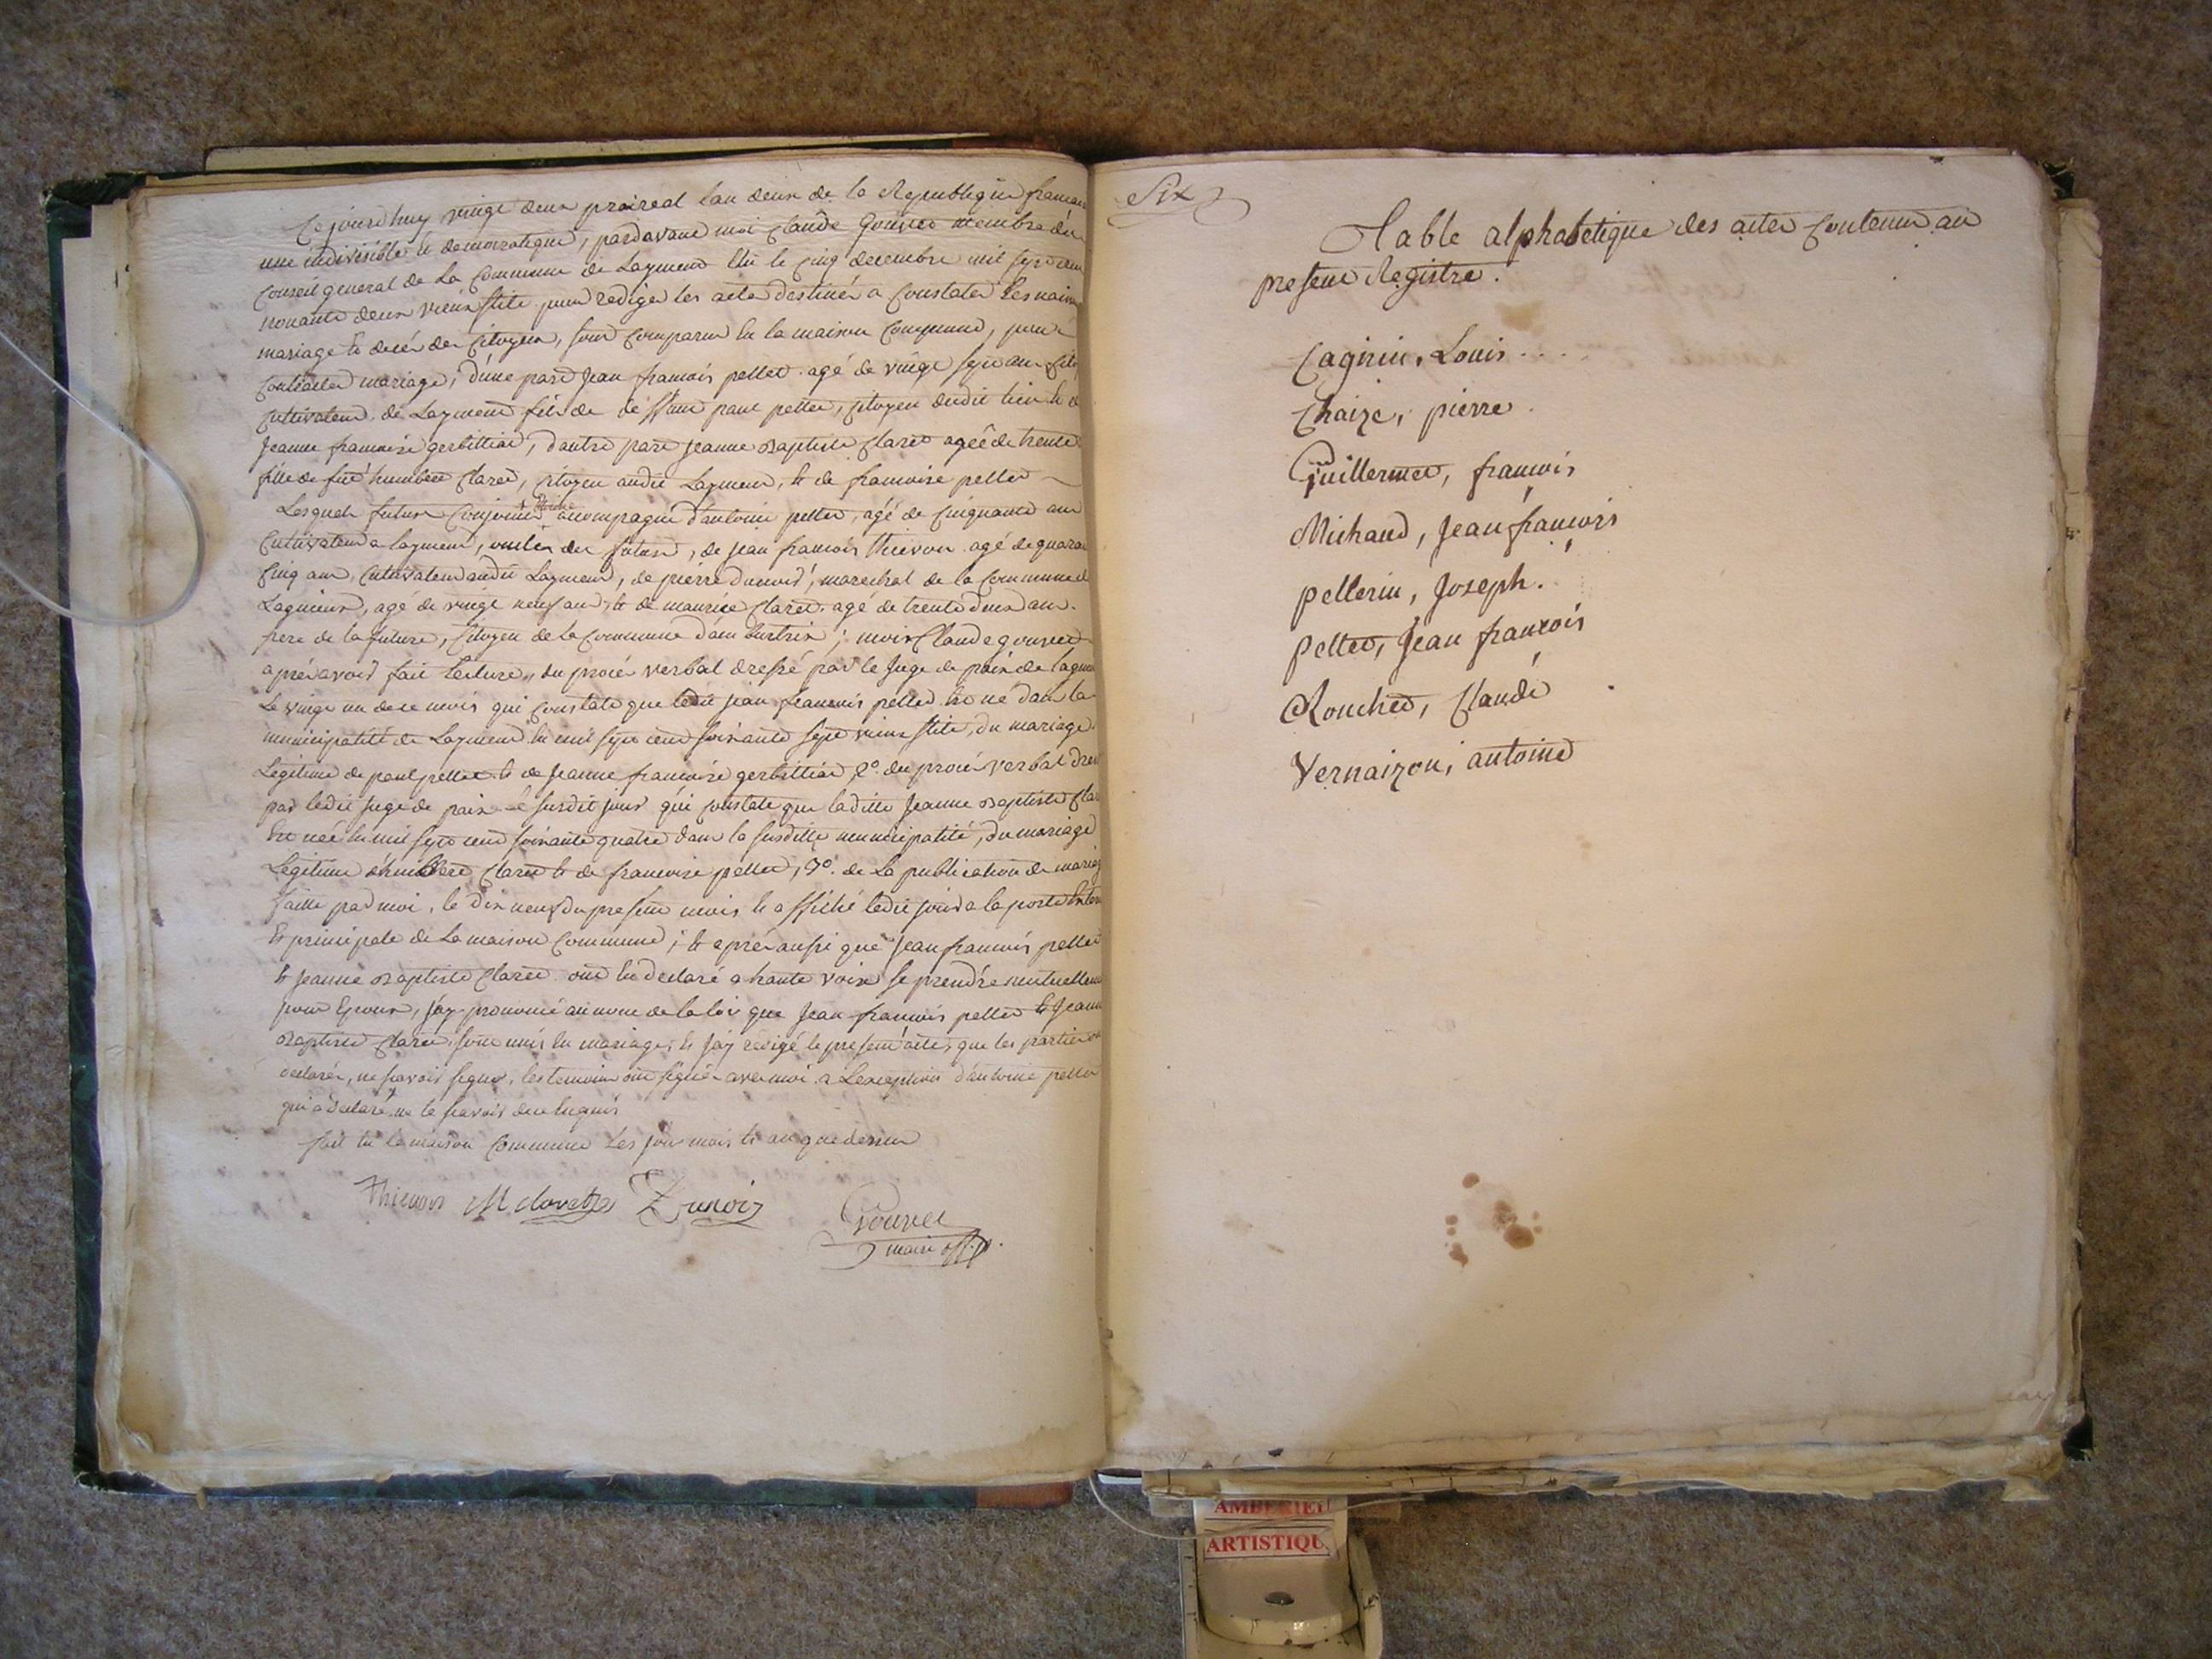 Ce jourd'huy vingt deux prairéal l'an deux de la Republique francais
une indivisible et democratique, pardavant moi Claude Gouvet membre du
Conseil general de la Commune de Layment élu le cinq decembre mil sept cent
nonante deux vieux stile pour rediger les actes destinés a Constater les naiss
mariage et decés des Citoyens, sont comparus en la maison Commune, pour
contracter mariage, d'une part Jean francois pellet agé de vingt sept ans
Cultivateur de Layment fils de deffunt paul pellet, citoyen dudit lieu et d
Jeanne francoise gerbilliat, d'autre part Jeanne Baptiste Claret agée de trente
fille de fut humbert Claret, citoyen audit Layment, et de francoise pellet
Lesquels futurs Conjoints accompagné d'antoine pellet, agé de cinquante ans
Cultivateur a layment, oncles des futurs, de Jean francois thievon agé de quaran
cinq ans, Cultivateur audit Layment, de pierre dunoid, marechal de la Commune d
Lagnieux, agé de vingt neuf ans, et de maurice Claret agé de trente deux ans
frere de la future, Citoyen de la Commune d'am ; moi Claude gouvet
aprés avoir fait lecture, du procés verbal dressé par le Juge de paix de lagni
Le vingt un de ce mois qui constate que ledit jean francois pellet est né dans la
municipalité de Layment en mil sept cent soixante sept vieux stile, du mariage
Legitime de paul pellet et de Jeanne francoise gerbilliat, 2°. du procés verbal dres
par ledit Juge de paix le susdit jour qui constate que laditte Jeanne Baptiste Clar
Est née en mil sept cent soixante quatre dans la susditte municipalité, du mariage
Legitime d'humbert Claret et de francoise pellet, 3°. de La publication de mariag
faitte par moi, le dix neuf du present mois et affiché ledit jour a la porte
Et principale de La maison Commune ; et aprés aussi que Jean francois pellet
et Jeanne Baptiste Claret ont eu declaré a haute voix se prendre mutuellem
pour Epoux, j'ay prononcé au nom de la loi que Jean francois pellet et Jeann
Baptiste Claret sont unis en mariage, et j'ay redigé le present acte, que les parties on
declaré, ne savoir signer, les temoins ont signé avec moi a L'exception d'antoine pellet
qui a declaré ne le savoir de ce enquis
fait en la maison Commune Les jour mois et an que dessus
Thievon M claret Dunoiz
Gouvet
maire off. p.
Six
Table alphabetique des actes Contenus au
present Registre.
Cagnin, Louis . . . .
Chaize, pierre
Guillermet, francois
Michaud, Jean francois
pellerin, Joseph.
pellet, Jean francois
Rouchet, Claude
Vernaizon, antoine
AMBERIEU
ARTISTIQU